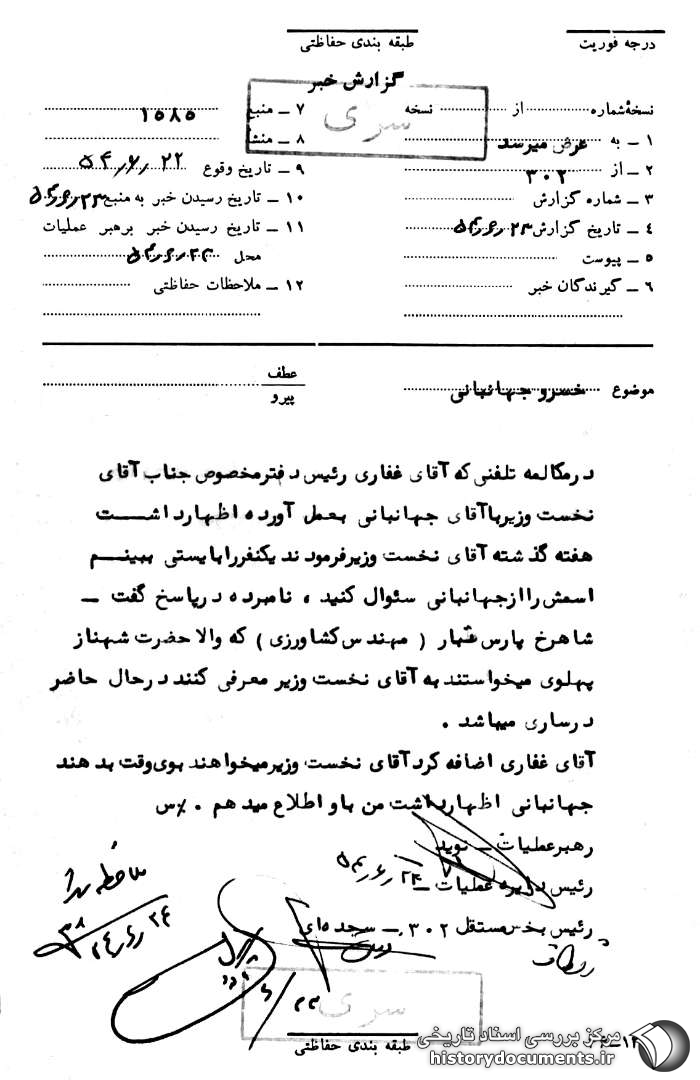 درجه فوریت
طبقه بندی حفاظتی
گزارش خبر
سری
نسخهٔ شماره ........ از ........ نسخه
۱ ـ به عرض میرسد
۲ ـ از ۳۰۲
۳ ـ شماره گزارش
۴ ـ تاریخ گزارش ۵۴٫۶٫۲۳
۵ ـ پیوست
۶ ـ گیرندگان خبر
۷ ـ منبع ۱۵۸۵
۸ ـ منشأ
۹ ـ تاریخ وقوع ۵۴٫۶٫۲۲
۱۰ ـ تاریخ رسیدن خبر به منبع ۵۴٫۶٫۲۳
۱۱ ـ تاریخ رسیدن خبر برهبر عملیات
محل ۵۴٫۶٫۲۳
۱۲ ـ ملاحظات حفاظتی
موضوع خسرو جهانبانی
عطف
پیرو
درمکالمه تلفنی که آقای غفاری رئیس دفترمخصوص جناب آقای
نخست وزیرباآقای جهانبانی بعمل آورده اظهارداشت
هفته گذشته آقای نخست وزیرفرمودند یکنفررابایستی ببینم
اسمش راازجهانبانی سئوال کنید ، نامبرده درپاسخ گفت ـ
شاهرخ پارس تبار ( مهندس کشاورزی ) که والا حضرت شهناز
پهلوی میخواستند به آقای نخست وزیر معرفی کنند درحال حاضر
درساری میباشد .
آقای غفاری اضافه کرد آقای نخست وزیرمیخواهند بوی وقت بدهند
جهانبانی اظهارداشت من باو اطلاع میدهم . /س
رهبرعملیات ـ نوید
رئیس دایره عملیات ـ
۵۴٫۶٫۲۴
رئیس بخش مستقل ۳۰۲ ـ سجده‌ای
ملاحظه شد
۲۴٫۶٫۲۴
سری
طبقه بندی حفاظتی
مرکز بررسی اسناد تاریخی
historydocuments.ir